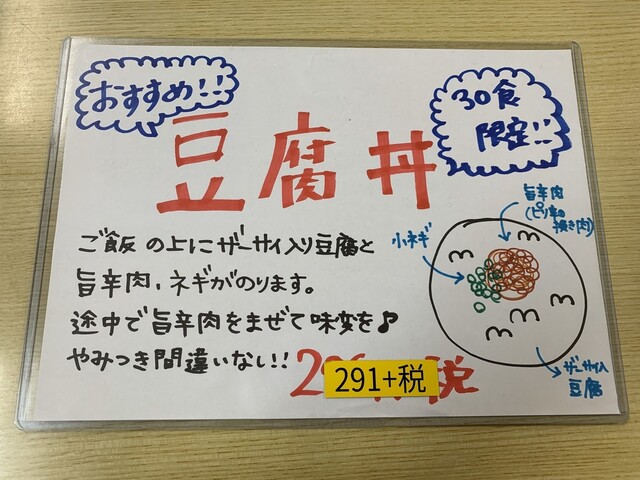 おすすめ!!
30食
限定!!
豆腐丼
ご飯の上にザーサイ入り豆腐と
旨辛肉、ネギがのります。
途中で旨辛肉をまぜて味変を♪
やみつき間違いなし!!
291+税
税
小ネギ
旨辛肉
(ピリ辛の
挽き肉)
ザーサイ入
豆腐